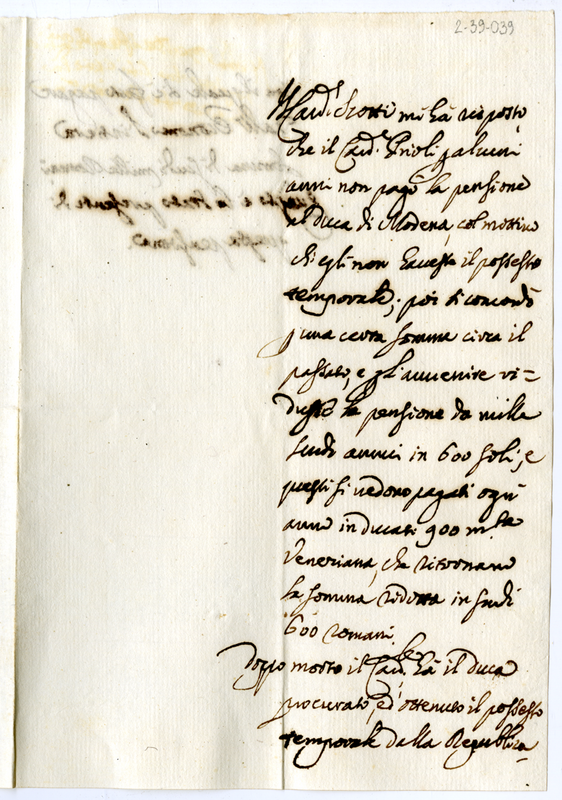 2-39-039
Il Card.l Chotti mi hà risposto
che il Card.l Prioli p alcuni
anni non pagò la pensione
al Duca di Modena, col mottivo
ch'egli non havesse il possesso
temporale; poi si concordò
p una certa somma circa il
passato, e p l'auuenire ri=
dusse la pensione da mille
scudi annui in 600 soli, e
questi si uedono pagati ogni
anno in ducati 900 m.ta
Veneziana, che ritornano
la somma ridotta in scudi
600 romani.
Doppo morto il Card.l hà il duca
procurato, ed ottenuto il possesso
temporale dalla Republica